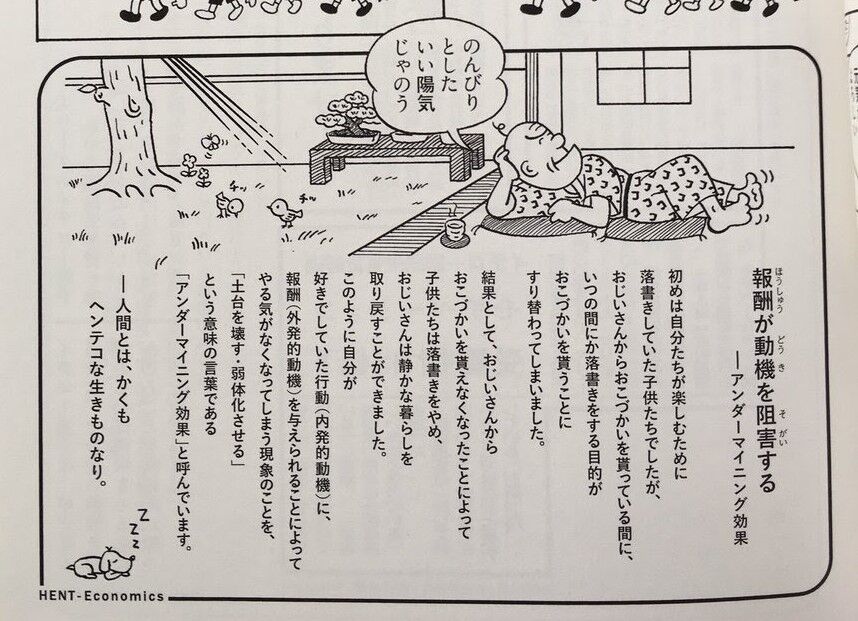 のんびり
とした
いい陽気
じゃのう
チッ
チッ
報酬が動機を阻害する
ほうしゅう どうき そがい
―アンダーマイニング効果
初めは自分たちが楽しむために
落書きしていた子供たちでしたが、
おじいさんからおこづかいを貰っている間に、
いつの間にか落書きをする目的が
おこづかいを貰うことに
すり替わってしまいました。
結果として、おじいさんから
おこづかいを貰えなくなったことによって
子供たちは落書きをやめ、
おじいさんは静かな暮らしを
取り戻すことができました。
このように自分が
好きでしていた行動（内発的動機）に、
報酬（外発的動機）を与えられることによって
やる気がなくなってしまう現象のことを、
「土台を壊す・弱体化させる」
という意味の言葉である
「アンダーマイニング効果」と呼んでいます。
―人間とは、かくも
ヘンテコな生きものなり。
ZZZZ
HENT-Economics